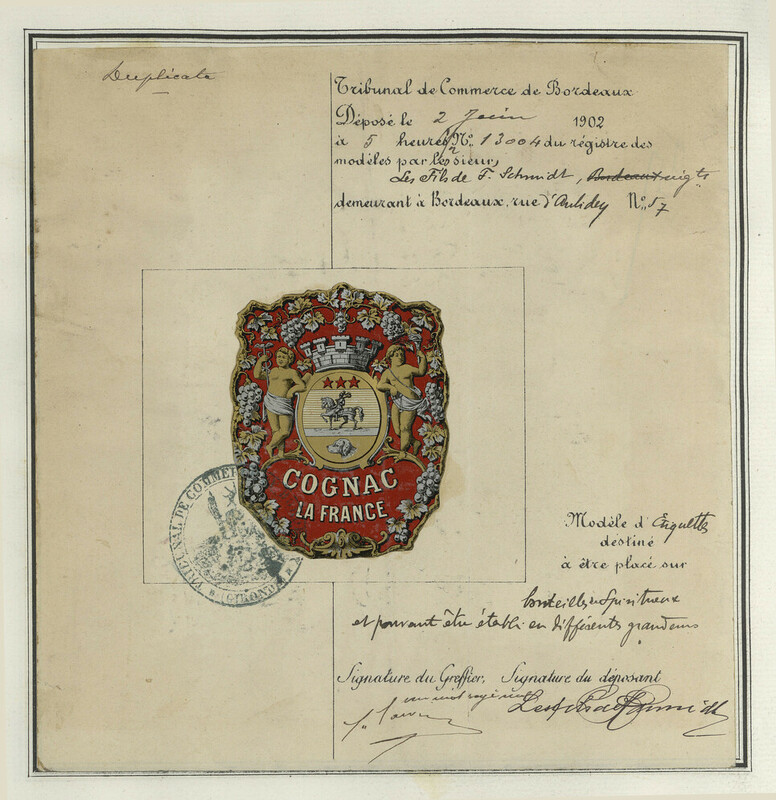 Duplicata
Tribunal de Commerce de Bordeaux
Déposé le 2 Juin 1902
à 5 heures No. 13004 du régistre des
modèles par les sieurs
Les Fils de T. Schmidt, Bordeaux
demeurant à Bordeaux, rue d' No. 57
COGNAC
LA FRANCE
TRIBUNAL DE COMMERCE
GIRONDE
Modèle d'Etiquettes
destiné
à être placé sur
bouteilles de Spiritueux
et pouvant être établi en différents grandeurs
Signature du Greffier, Signature du déposant
un mot rayé nul
Les fils de T. Schmidt